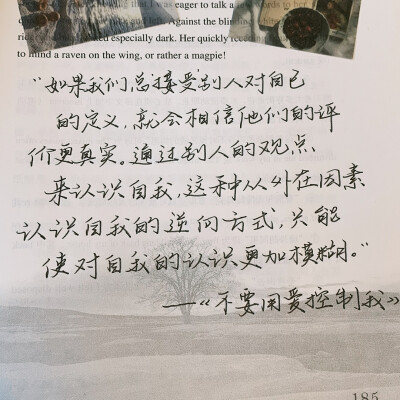 that I was eager to talk a few words to her
Against the blinding white
looked especially dark. Her quickly
to mind a raven on the wing, or rather a magpie!
“如果我们总接受别人对自己
的定义，就会相信他们的评
价更真实。通过别人的观点
来认识自我，这种从外在因素
认识自我的逆向方式，只能
使对自我的认识更加模糊。”
——《不要用爱控制我》
185